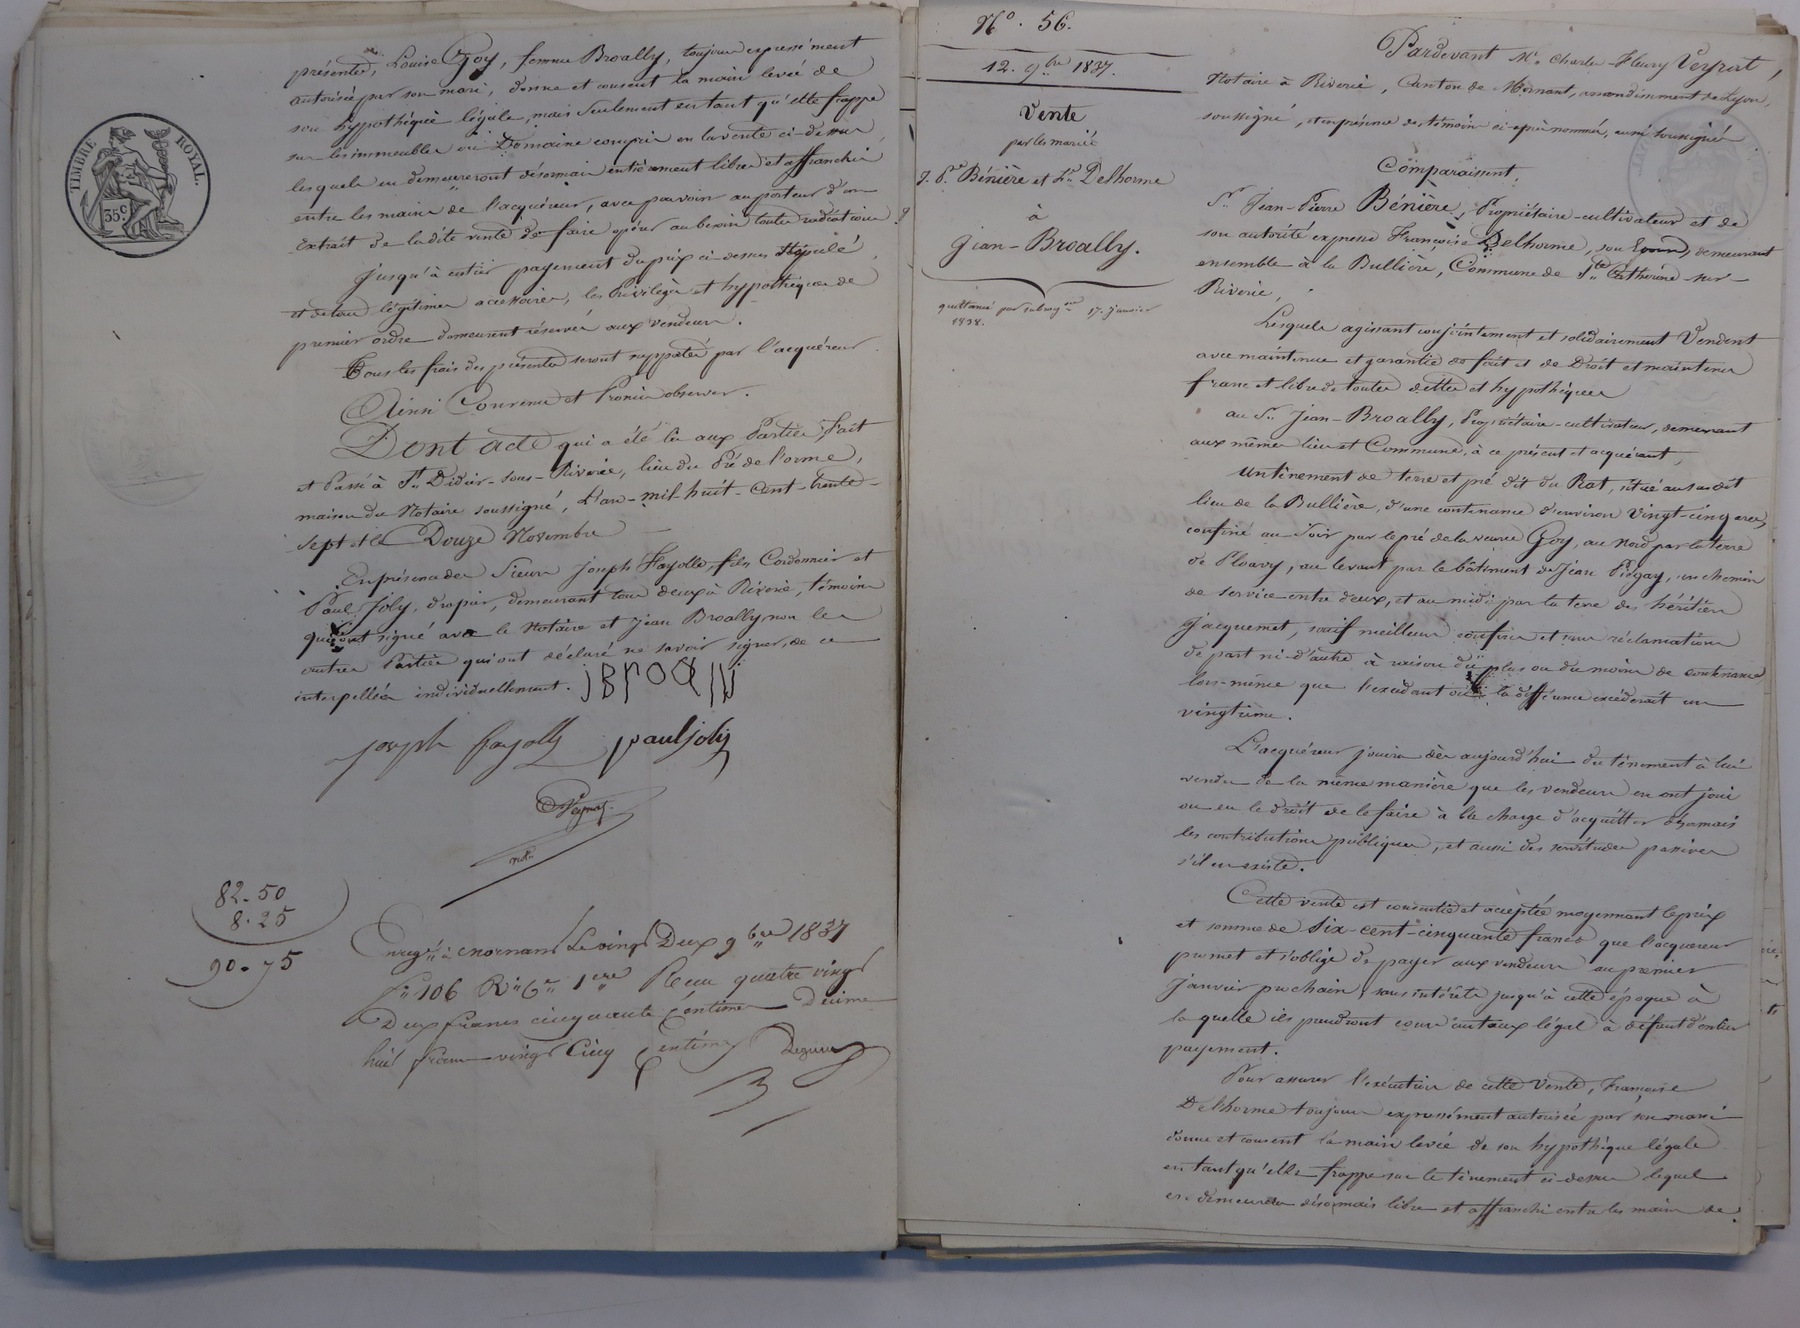 présentes, Louise Goy, femme Broally, toujours expressément
autorisée par son mari, donne et consent la main levée de
son hypothèque légale, mais seulement en tant qu'elle frappe
sur les immeubles ou Domaine compris en la vente ci-dessus
lesquels en demeureront désormais entièrement libres et affranchis
entre les mains de l'acquéreur, avec pouvoir au porteur d'un
Extrait de la dite vente de faire opérer au besoin toutes radiations
Jusqu'à entier payement du prix ci-dessus stipulé
et de tous légitimes accessoires, les Privilèges et hypothèques de
premier ordre demeurent réservés aux vendeurs.
Tous les frais des présentes seront supportés par l'acquéreur
Ainsi Convenu et Promis observer.
Dont acte qui a été lu aux Parties, Fait
et Passé à St. Didier-sous-Riverie, lieu du Pré de l'orme,
maison du Notaire soussigné, L'an-mil-huit-Cent-trente-
sept et le Douze Novembre
En présence des Sieurs Joseph Fayolle, fils, Cordonnier et
Paul Joly, drapier, demeurant tous deux à Riverie, témoins
qui ont signé avec le Notaire et Jean Broally, non les
autres Parties qui ont déclaré ne savoir signer, de ce
interpellées individuellement.
jBroally
joseph fayolle pauljoly
not.
82.50
8.25
90.75
Enreg.é à mornant Le vingt Deux 9bre 1837
f° 106 R° C. 1ere Recu quatre vingt
Deux francs cinquante Centimes Décime
huit francs vingt Cinq Centimes
TIMBRE ROYAL.
35c
N°. 56.
12. 9.bre 1837.
Vente
par les mariés
J. P.re Bénière et F.se Delhorme
à
Jean-Broally.
quittancé par subrog.on 17. janvier
1838.
Pardevant M.e Charles-Fleury Veyrat,
Notaire à Riverie, Canton de Mornant, arrondissement de Lyon,
soussigné, et en présence des témoins ci-après nommés, aussi soussignés
Comparaissent,
S.r Jean-Pierre Bénière, Propriétaire-cultivateur et de
son autorité expresse Françoise Delhorme, son Epouse, demeurant
ensemble à la Bullière, Commune de S.te Catherine-sur-
Riverie,
Lesquels agissant conjointement et solidairement Vendent
avec maintenue et garantie de fait et de Droit et maintenir
franc et libre de toutes dettes et hypothèques
au S.r Jean-Broally, Propriétaire-cultivateur, demeurant
aux mêmes lieu et Commune, à ce présent et acquérant,
Un tènement de terre et pré dit du Rat, situé au susdit
lieu de la Bullière, d'une contenance d'environ vingt-cinq ares,
confiné au Soir par le pré de la veuve Goy, au Nord par la terre
de Ploavy, au levant par le bâtiment de Jean Piégay, un chemin
de service entre deux, et au midi par la terre des héritiers
Jacquemet, sauf meilleurs confins et sans réclamation
de part ni d'autre à raison du plus ou du moins de contenance
lors-même que l'excédant ou la différence excéderait un
vingtième.
L'acquéreur jouira dès aujourd'hui du tènement à lui
vendu de la même manière que les vendeurs en ont joui
ou eu le droit de le faire à la charge d'acquitter désormais
les contributions publiques, et aussi des servitudes passives
s'il en existe.
Cette vente est consentie et acceptée moyennant le prix
et somme de Six-cent-cinquante francs que l'acquéreur
promet et s'oblige de payer aux vendeurs au premier
Janvier prochain, sans intérêts jusqu'à cette époque à
la quelle ils prendront cours au taux légal à défaut d'entier
payement.
Pour assurer l'exécution de cette Vente, Françoise
Delhorme toujours expressément autorisée par son mari
donne et consent la main levée de son hypothèque légale
en tant qu'elle frappe sur le tènement ci-dessus lequel
en demeurera désormais libre et affranchi entre les mains de